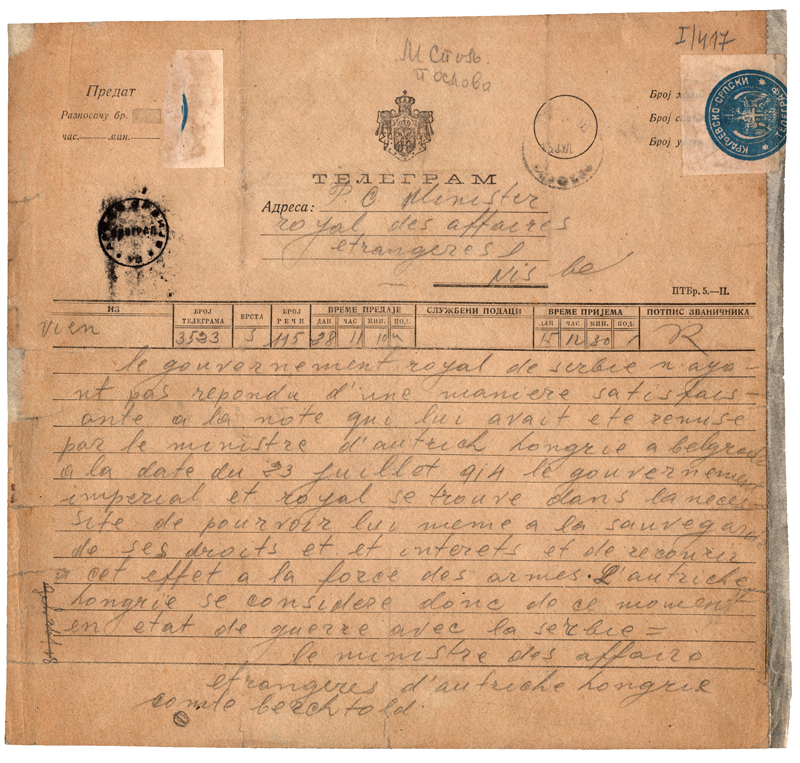 I/417
М Стип.
послова
Предат
Разносачу бр.
час. мин.
Број
Број
Број у
КРАЉЕВСКО-СРПСКИ
ТЕЛЕГРАМ
Адреса: P. C Minister
royal des affaires
etrangeres
Nis be
ПТБр. 5.—II.
ИЗ БРОЈ ТЕЛЕГРАМА ВРСТА БРОЈ РЕЧИ ВРЕМЕ ПРЕДАЈЕ СЛУЖБЕНИ ПОДАЦИ ВРЕМЕ ПРИЈЕМА ПОТПИС ЗВАНИЧНИКА
ДАН ЧАС МИН. ПОД. ДАН ЧАС МИН. ПОД.
vien 3523 115 28 11 10 15 12 30 R
le gouvernement royal de serbie n aya-
nt pas repondu d'une maniere satisfais-
ante a la note qui lui avait ete remise
par le ministre d'autrich hongrie a belgrade
a la date du 23 juillot 914 le gouvernement
imperial et royal se trouve dans la neces
site de pourvoir lui meme a la sauvegar
de ses droits et et interets et de recourir
a cet effet a la force des armes. L'autriche
hongrie se considere donc de ce moment
en etat de guerre avec la serbie =
le ministre des affairo
etrangeres d'autriche hongrie
comte berchtold.